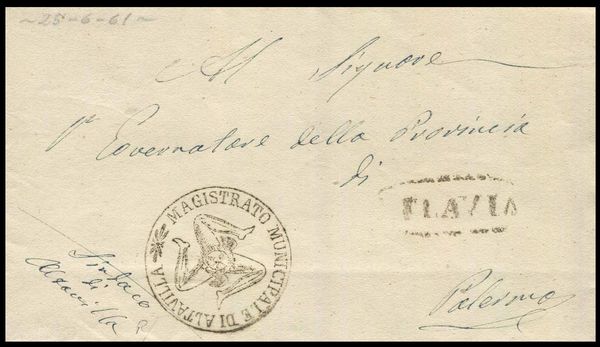 ~25-6-61~
Al Signore
Governatore della Provincia
di
FLAVIA
MAGISTRATO MUNICIPALE DI ALTAVILLA
Sindaco
di
Altavilla
Palermo